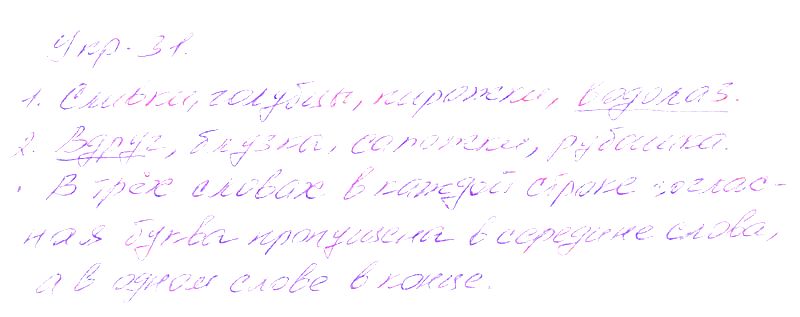 Упр. 31.
1. Сливки, голубцы, пирожки, водолаз.
2. Вдруг, блузка, сапожки, рубашка.
. В трёх словах в каждой строке соглас-
ная буква пропущена в середине слова,
а в одном слове в конце.